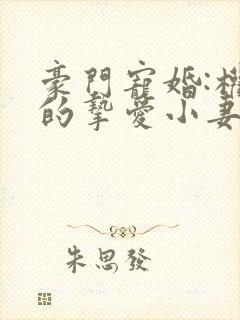 豪門寵婚:權
的摯愛小妻
朱思發